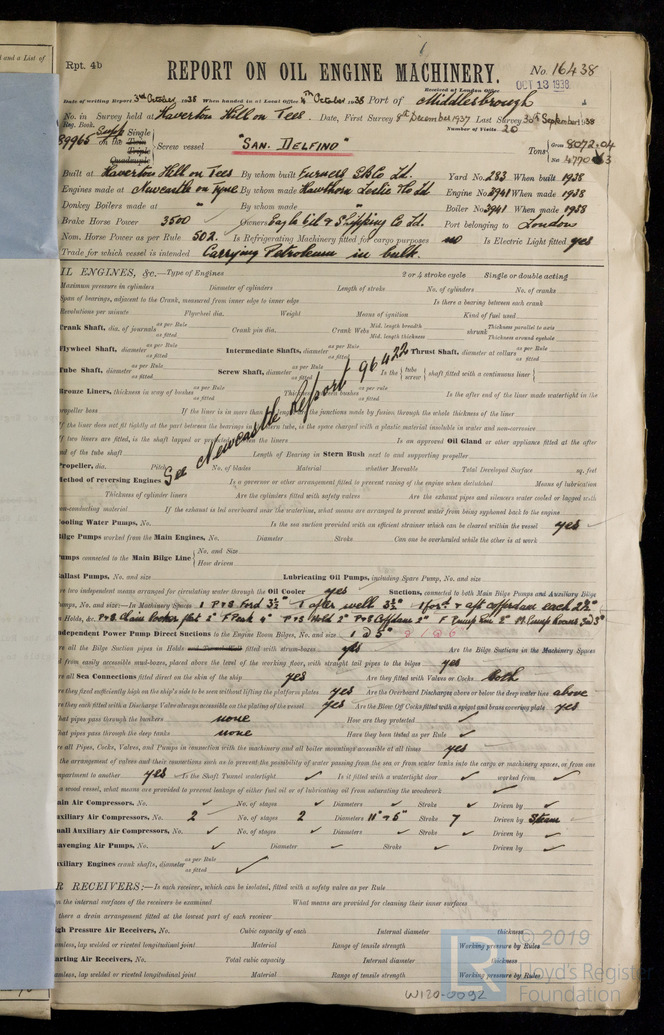 d and a List of
Rpt. 4b
REPORT ON OIL ENGINE MACHINERY.
No. 16438
Received at London Office
OCT 13 1938
Date of writing Report 3rd October 1938 When handed in at Local Office 4th October 1938 Port of Middlesbrough
No. in Survey held at Haverton Hill on Tees. Date, First Survey 8th December 1937 Last Survey 30th September 1938
Reg. Book.
Number of Visits 20
89965 on the Single Twin Triple Quadruple Screw vessel "SAN. DELFINO"
Tons Gross 8072.04
Net 4770.63
Built at Haverton Hill on Tees By whom built Furness SB Co Ld. Yard No. 283 When built 1938
Engines made at Newcastle on Tyne By whom made Hawthorn Leslie & Co Ld Engine No. 3941 When made 1938
Donkey Boilers made at " By whom made " Boiler No. 3941 When made 1938
Brake Horse Power 3500 Owners Eagle Oil & Shipping Co Ld. Port belonging to London
Nom. Horse Power as per Rule 502. Is Refrigerating Machinery fitted for cargo purposes no Is Electric Light fitted yes
Trade for which vessel is intended Carrying Petroleum in bulk.
IL ENGINES, &c.—Type of Engines 2 or 4 stroke cycle Single or double acting
Maximum pressure in cylinders Diameter of cylinders Length of stroke No. of cylinders No. of cranks
Span of bearings, adjacent to the Crank, measured from inner edge to inner edge Is there a bearing between each crank
Revolutions per minute Flywheel dia. Weight Means of ignition Kind of fuel used
Crank Shaft, dia. of journals as per Rule as fitted Crank pin dia. Crank Webs Mid. length breadth Mid. length thickness shrunk Thickness parallel to axis Thickness around eyehole
Flywheel Shaft, diameter as per Rule as fitted Intermediate Shafts, diameter as per Rule as fitted Thrust Shaft, diameter at collars as per Rule as fitted
Tube Shaft, diameter as per Rule as fitted Screw Shaft, diameter as per Rule as fitted Is the tube screw shaft fitted with a continuous liner
See Newcastle Report 96422
Bronze Liners, thickness in way of bushes as per Rule as fitted Thickness between bushes as per rule as fitted Is the after end of the liner made watertight in the
propeller boss If the liner is in more than one length are the junctions made by fusion through the whole thickness of the liner
If the liner does not fit tightly at the part between the bearings in the stern tube, is the space charged with a plastic material insoluble in water and non-corrosive
If two liners are fitted, is the shaft lapped or protected between the liners Is an approved Oil Gland or other appliance fitted at the after
end of the tube shaft Length of Bearing in Stern Bush next to and supporting propeller
Propeller, dia. Pitch No. of blades Material whether Moveable Total Developed Surface sq. feet
Method of reversing Engines Is a governor or other arrangement fitted to prevent racing of the engine when declutched Means of lubrication
Thickness of cylinder liners Are the cylinders fitted with safety valves Are the exhaust pipes and silencers water cooled or lagged with
non-conducting material If the exhaust is led overboard near the waterline, what means are arranged to prevent water from being syphoned back to the engine
Cooling Water Pumps, No. Is the sea suction provided with an efficient strainer which can be cleared within the vessel yes
Bilge Pumps worked from the Main Engines, No. Diameter Stroke Can one be overhauled while the other is at work
Pumps connected to the Main Bilge Line No. and Size How driven
Ballast Pumps, No. and size Lubricating Oil Pumps, including Spare Pump, No. and size
re two independent means arranged for circulating water through the Oil Cooler yes Suctions, connected to both Main Bilge Pumps and Auxiliary Bilge
Pumps, No. and size:—In Machinery Spaces 1 P & S Ford 3½" 1 after well 3½" 1 for'd & aft cofferdam each 2½"
Holds, &c. P & S. Chain locker flat 2" F Peak 4" P & S Hold 2" P & S Cofferdam 2" F. Pump Rm 2" M. Pump Rooms 3 @ 3"
Independent Power Pump Direct Suctions to the Engine Room Bilges, No. and size 1 @ 5"
re all the Bilge Suction pipes in Holds and Tunnel Well fitted with strum-boxes yes Are the Bilge Suctions in the Machinery Spaces
d from easily accessible mud-boxes, placed above the level of the working floor, with straight tail pipes to the bilges yes
re all Sea Connections fitted direct on the skin of the ship yes Are they fitted with Valves or Cocks both
re they fixed sufficiently high on the ship's side to be seen without lifting the platform plates yes Are the Overboard Discharges above or below the deep water line above
re they each fitted with a Discharge Valve always accessible on the plating of the vessel yes Are the Blow Off Cocks fitted with a spigot and brass covering plate yes
hat pipes pass through the bunkers none How are they protected ✓
hat pipes pass through the deep tanks none Have they been tested as per Rule ✓
re all Pipes, Cocks, Valves, and Pumps in connection with the machinery and all boiler mountings accessible at all times yes
the arrangement of valves and their connections such as to prevent the possibility of water passing from the sea or from water tanks into the cargo or machinery spaces, or from one
mpartment to another yes Is the Shaft Tunnel watertight ✓ Is it fitted with a watertight door ✓ worked from ✓
a wood vessel, what means are provided to prevent leakage of either fuel oil or of lubricating oil from saturating the woodwork ✓
ain Air Compressors, No. ✓ No. of stages ✓ Diameters ✓ Stroke ✓ Driven by ✓
uxiliary Air Compressors, No. 2 No. of stages 2 Diameters 11" & 5" Stroke 7 Driven by Steam
mall Auxiliary Air Compressors, No. ✓ No. of stages ✓ Diameters ✓ Stroke ✓ Driven by ✓
cavenging Air Pumps, No. ✓ Diameter ✓ Stroke ✓ Driven by ✓
uxiliary Engines crank shafts, diameter as per Rule as fitted ✓
R RECEIVERS:—Is each receiver, which can be isolated, fitted with a safety valve as per Rule
n the internal surfaces of the receivers be examined What means are provided for cleaning their inner surfaces
there a drain arrangement fitted at the lowest part of each receiver
igh Pressure Air Receivers, No. Cubic capacity of each Internal diameter thickness
eamless, lap welded or riveted longitudinal joint Material Range of tensile strength Working pressure by Rules
tarting Air Receivers, No. Total cubic capacity Internal diameter thickness
eamless, lap welded or riveted longitudinal joint Material Range of tensile strength Working pressure by Rules
© 2019
Lloyd's Register
Foundation
W120-0092